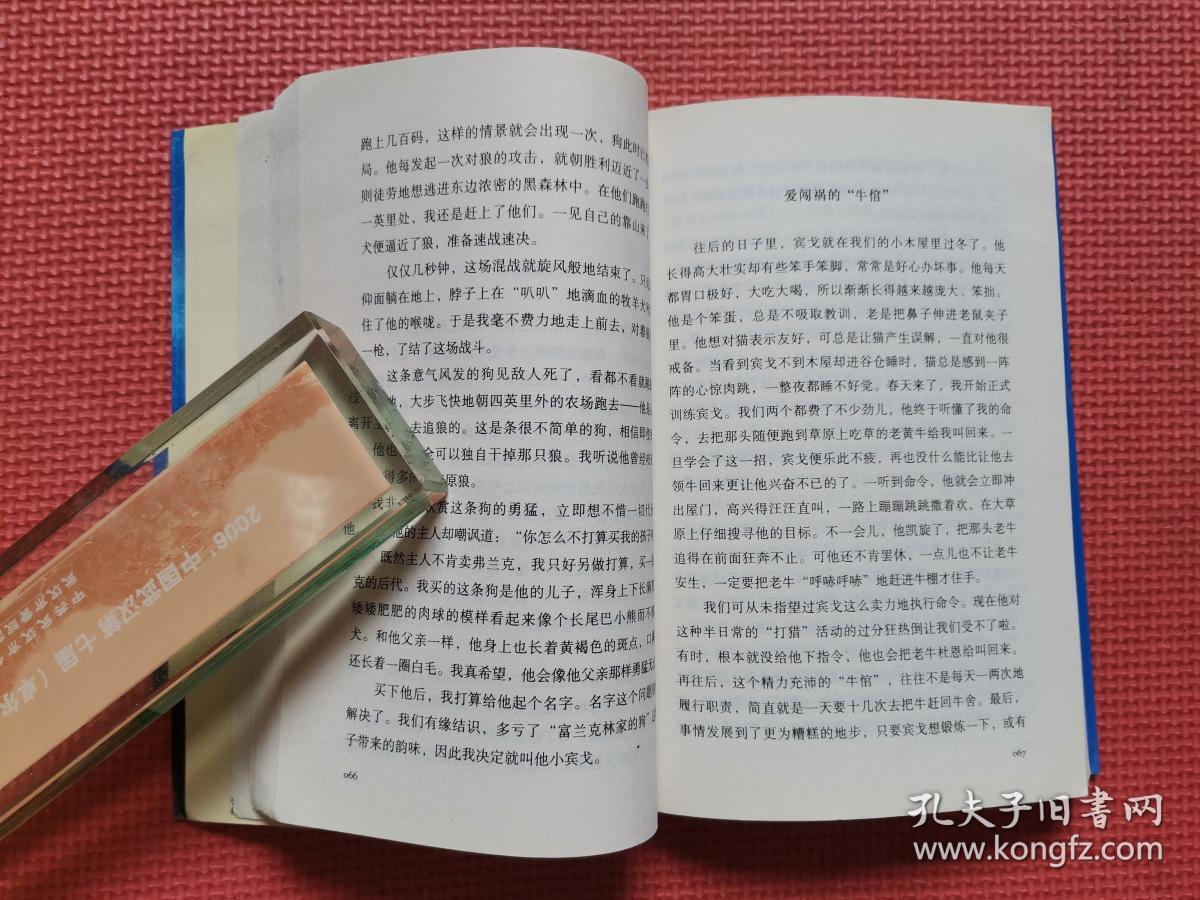 跑上几百码，这样的情景就会出现一次，狗此时已
局。他每发起一次对狼的攻击，就朝胜利迈近了一
则徒劳地想逃进东边浓密的黑森林中。在他们跑
一英里处，我还是赶上了他们。一见自己的靠山来了
犬便逼近了狼，准备速战速决。
仅仅几秒钟，这场混战就旋风般地结束了。只
仰面躺在地上，脖子上在“叭叭”地滴血的牧羊犬
住了他的喉咙。于是我毫不费力地走上前去，对着
一枪，了结了这场战斗。
这条意气风发的狗见敌人死了，看都不看就
地，大步飞快地朝四英里外的农场跑去——他是
离开 去追狼的。这是条很不简单的狗，相信即使
他也 全可以独自干掉那只狼。我听说他曾经
得多 原狼。
我非 欣赏这条狗的勇猛，立即想不惜一切代
他 他的主人却嘲讽道：“你怎么不打算买我的孩子
既然主人不肯卖弗兰克，我只好另做打算，买一
克的后代。我买的这条狗是他的儿子，浑身上下长满
矮矮肥肥的肉球的模样看起来像个长尾巴小熊而不
犬。和他父亲一样，他身上也长着黄褐色的斑点，口
还长着一圈白毛。我真希望，他会像他父亲那样勇猛无
买下他后，我打算给他起个名字。名字这个问题
解决了。我们有缘结识，多亏了“富兰克林家的狗”
子带来的韵味，因此我决定就叫他小宾戈。
066
爱闯祸的“牛倌”
往后的日子里，宾戈就在我们的小木屋里过冬了。他
长得高大壮实却有些笨手笨脚，常常是好心办坏事。他每天
都胃口极好，大吃大喝，所以渐渐长得越来越庞大、笨拙。
他是个笨蛋，总是不吸取教训，老是把鼻子伸进老鼠夹子
里。他想对猫表示友好，可总是让猫产生误解，一直对他很
戒备。当看到宾戈不到木屋却进谷仓睡时，猫总感到一阵
阵的心惊肉跳，一整夜都睡不好觉。春天来了，我开始正式
训练宾戈。我们两个都费了不少劲儿，他终于听懂了我的命
令，去把那头随便跑到草原上吃草的老黄牛给我叫回来。一
旦学会了这一招，宾戈便乐此不疲，再也没什么能比让他去
领牛回来更让他兴奋不已的了。一听到命令，他就会立即冲
出屋门，高兴得汪汪直叫，一路上蹦蹦跳跳撒着欢，在大草
原上仔细搜寻他的目标。不一会儿，他凯旋了，把那头老牛
追得在前面狂奔不止。可他还不肯罢休，一点儿也不让老牛
安生，一定要把老牛“呼哧呼哧”地赶进牛棚才住手。
我们可从未指望过宾戈这么卖力地执行命令。现在他对
这种半日常的“打猎”活动的过分狂热倒让我们受不了啦。
有时，根本就没给他下指令，他也会把老牛杜恩给叫回来。
再往后，这个精力充沛的“牛倌”，往往不是每天一两次地
履行职责，简直就是一天要十几次去把牛赶回牛舍。最后，
事情发展到了更为糟糕的地步，只要宾戈想锻炼一下，或有
067
2006' 中国武汉第七届（阜
中共武汉市
武汉市
孔夫子旧書网
www.kongfz.com